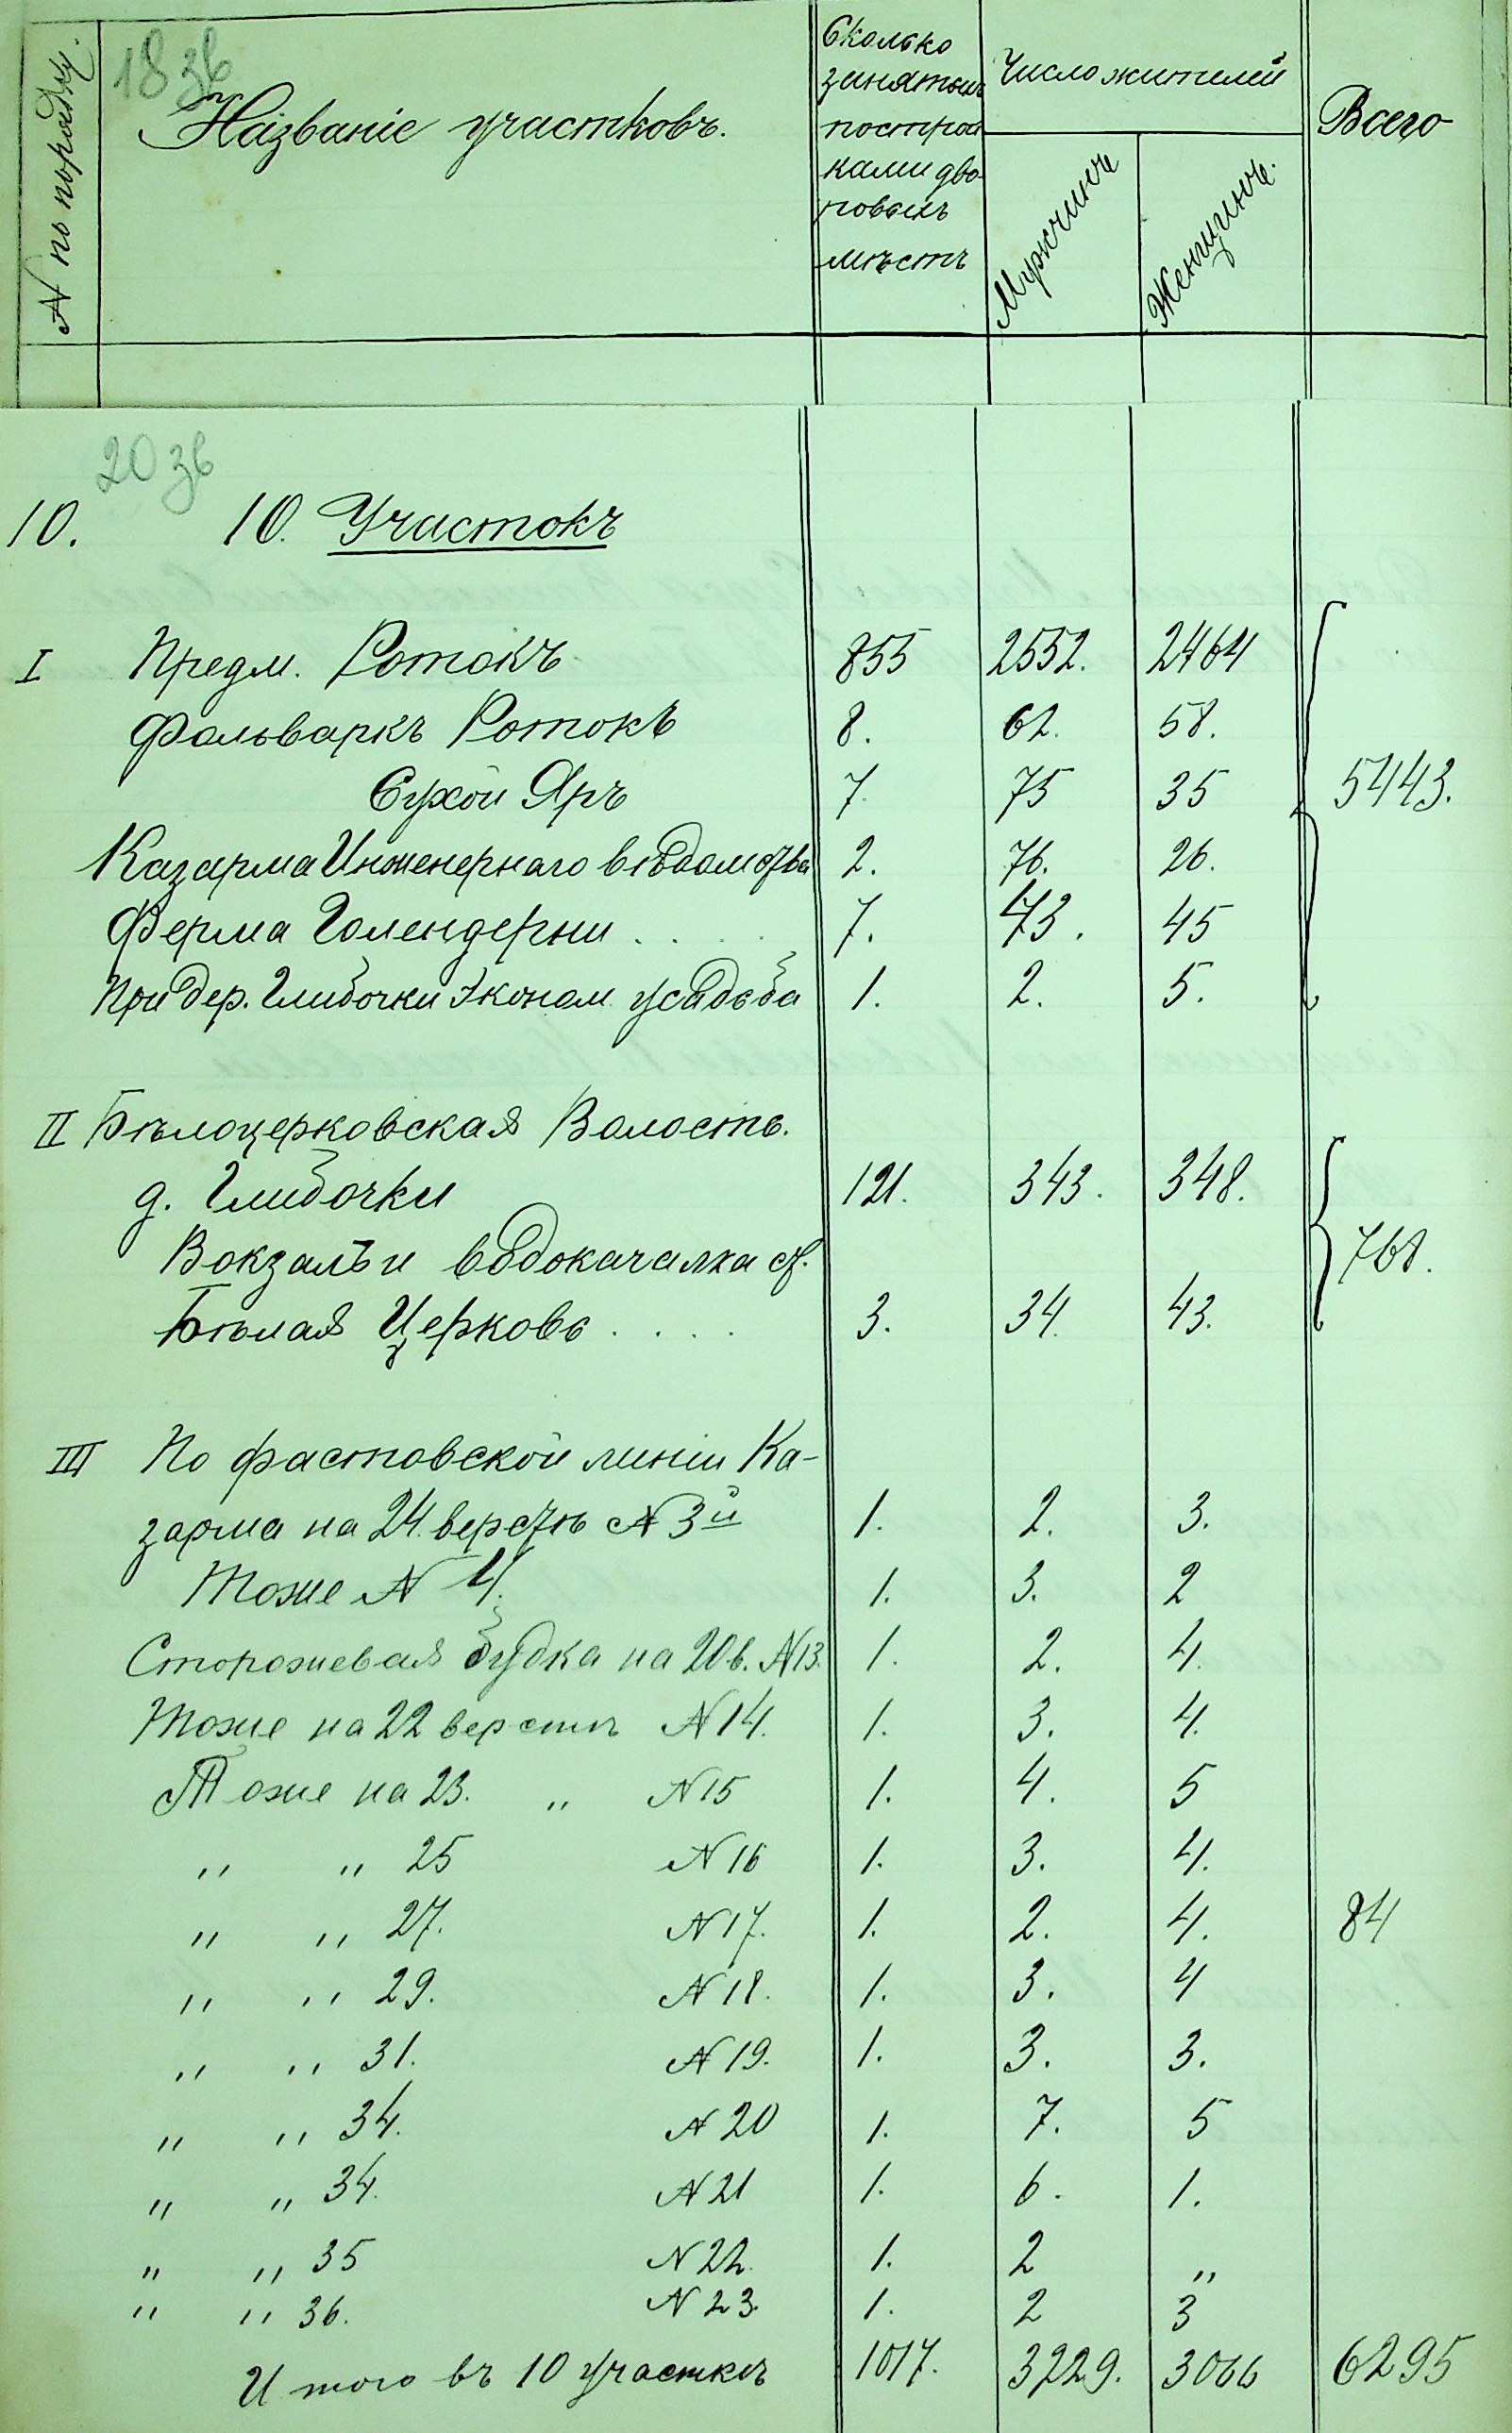 № по порядку.
18 зв
Названіе участковъ.
Сколько занятыхъ построй
ками дво
ровыхъ
мѣстъ
Число жителей
Мужчинъ
Женщинъ.
Всего
20 зв
10. 10. Участокъ
I Предм. Ротокъ 855 2552. 2464
Фольваркъ Ротокъ 8. 62. 58.
Сухой Яръ 7. 75 35 5443.
Казарма Инженернаго вѣдомства 2. 76. 26.
Ферма Голендерни . . . . 7. 43. 45
При дер. Глибочки Эконом. усадьба 1. 2. 5.
II Бѣлоцерковская Волость.
д. Глибочки 121. 343. 348.
Вокзалъ и водокачалка ст. 768.
Бѣлая Церковь . . . . 3. 34. 43.
III По фастовской линіи Ка-
зарма на 24. верстѣ № 3й 1. 2. 3.
Тоже № 4. 1. 3. 2
Сторожевая будка на 20 в. № 13. 1. 2. 4.
Тоже на 22 верстѣ № 14. 1. 3. 4.
Тоже на 23. " № 15 1. 4. 5
" " 25 № 16 1. 3. 4.
" " 27. № 17. 1. 2. 4. 84
" " 29. № 18. 1. 3. 4
" " 31. № 19. 1. 3. 3.
" " 34. № 20 1. 7. 5
" " 34. № 21 1. 6. 1.
" " 35 № 22. 1. 2 "
" " 36. № 23. 1. 2 3
Итого въ 10 участкѣ 1017. 3229. 3066 6295